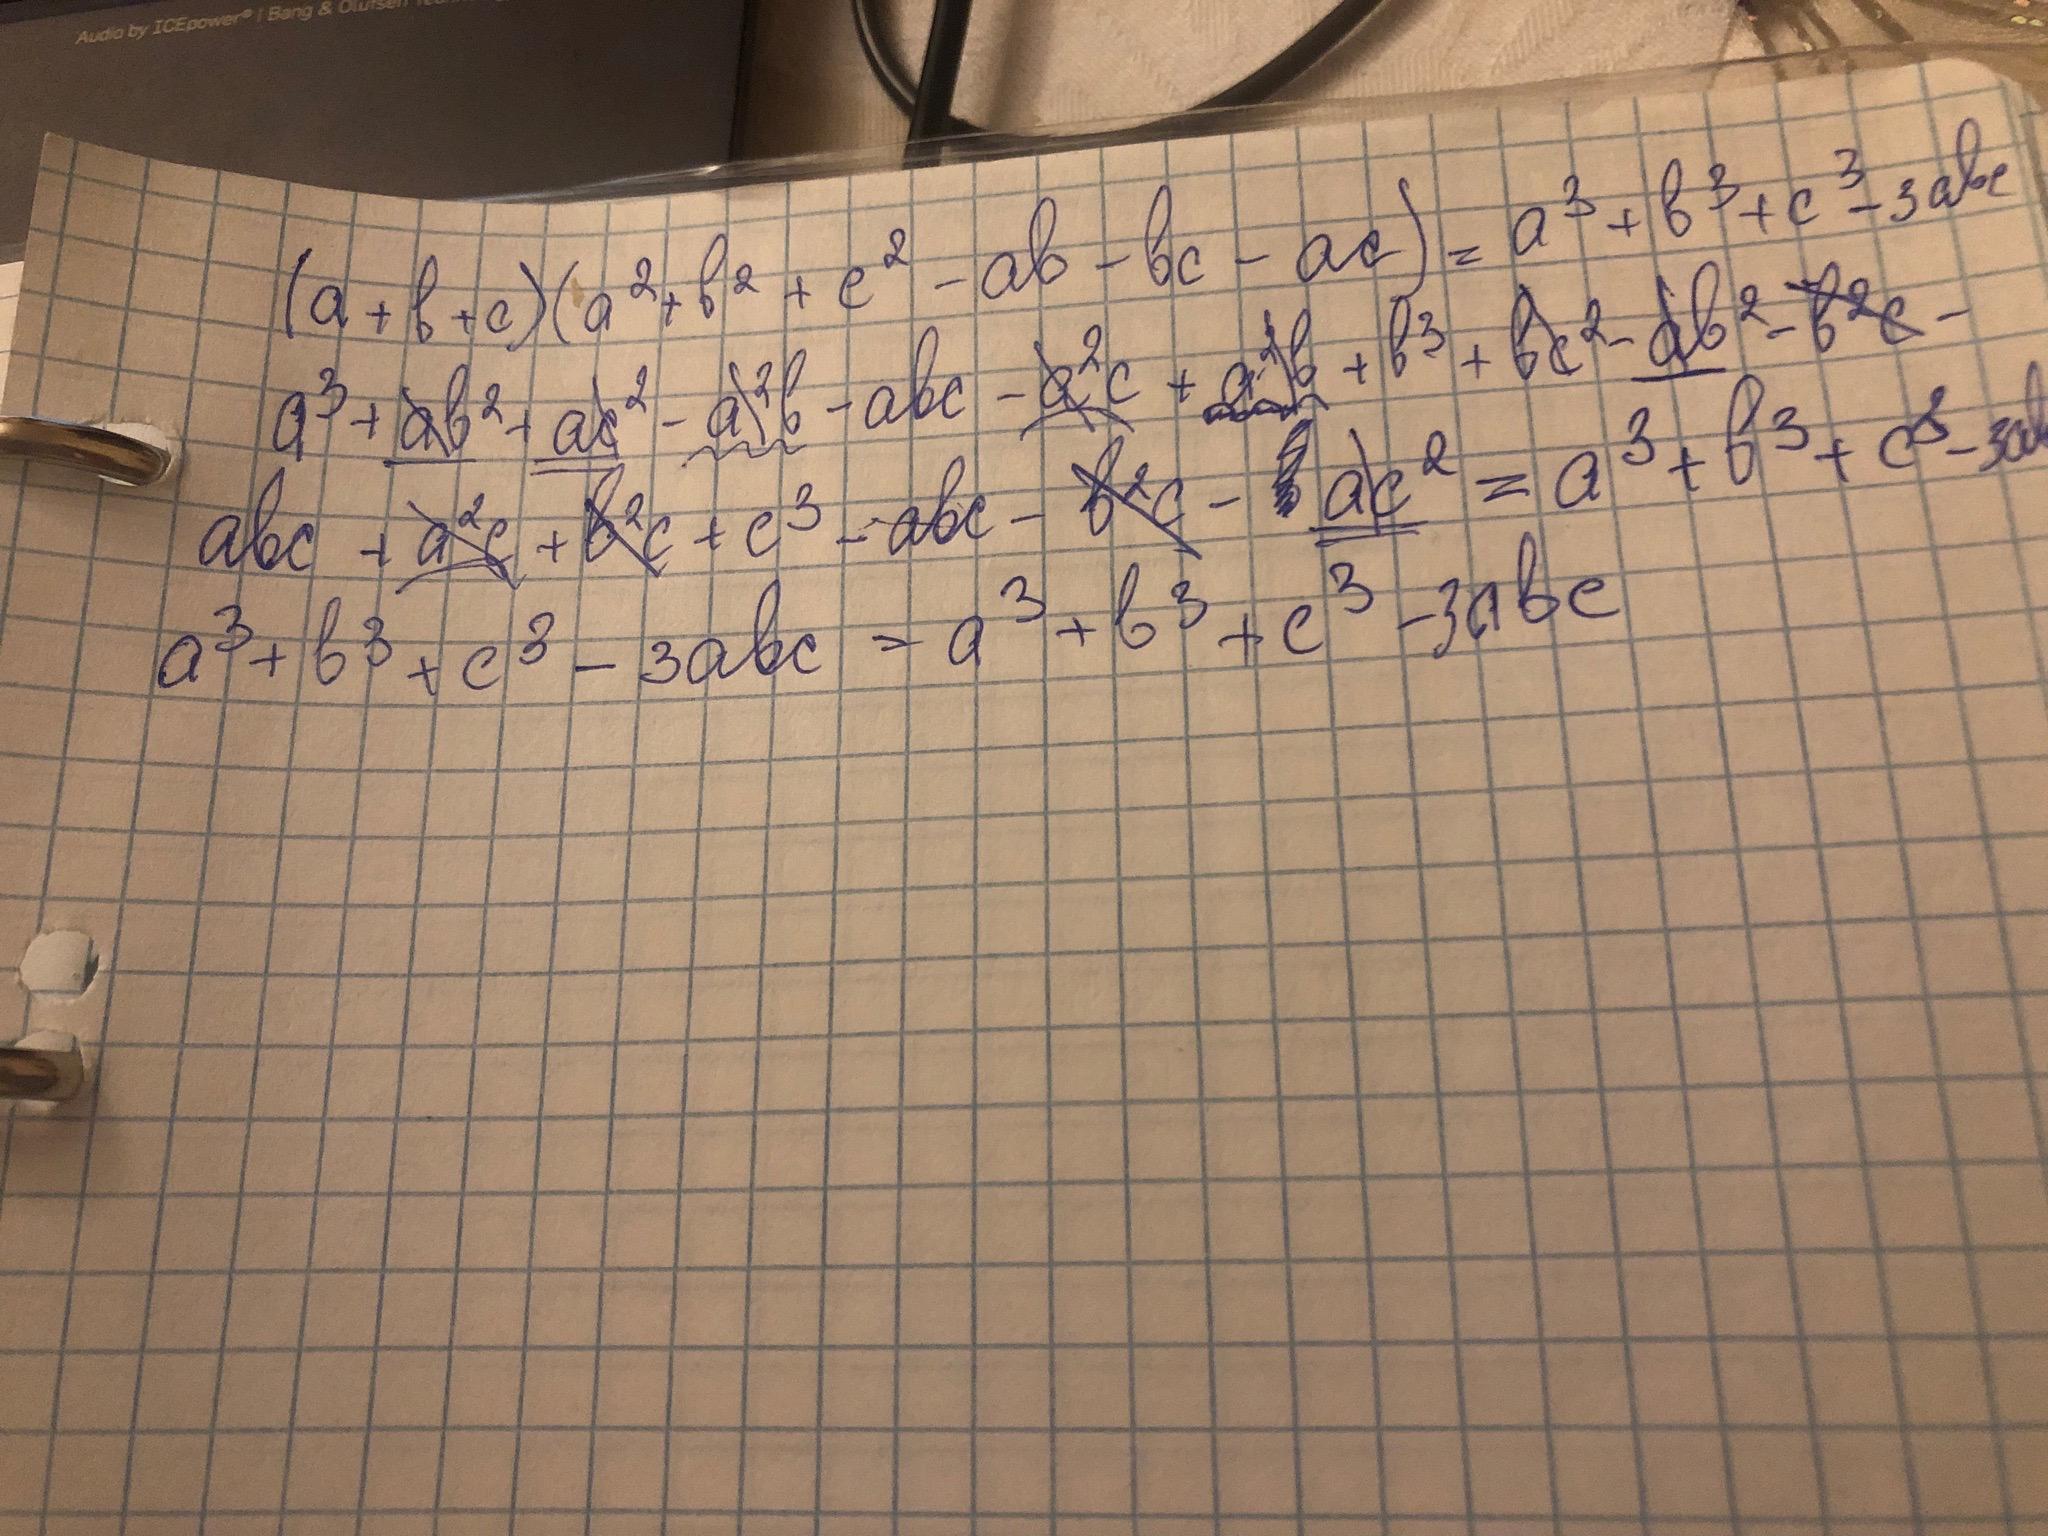 Audio by ICEpower® | Bang & Olufsen
(a+b+c)(a²+b²+c²-ab-bc-ac)=a³+b³+c³-3abc
a³+ab²+ac²-a²b-abc-a²c+a²b+b³+bc²-ab²-b²c-
abc+a²c+b²c+c³-abc-b²c-ac²=a³+b³+c³-3ab
a³+b³+c³-3abc=a³+b³+c³-3abc